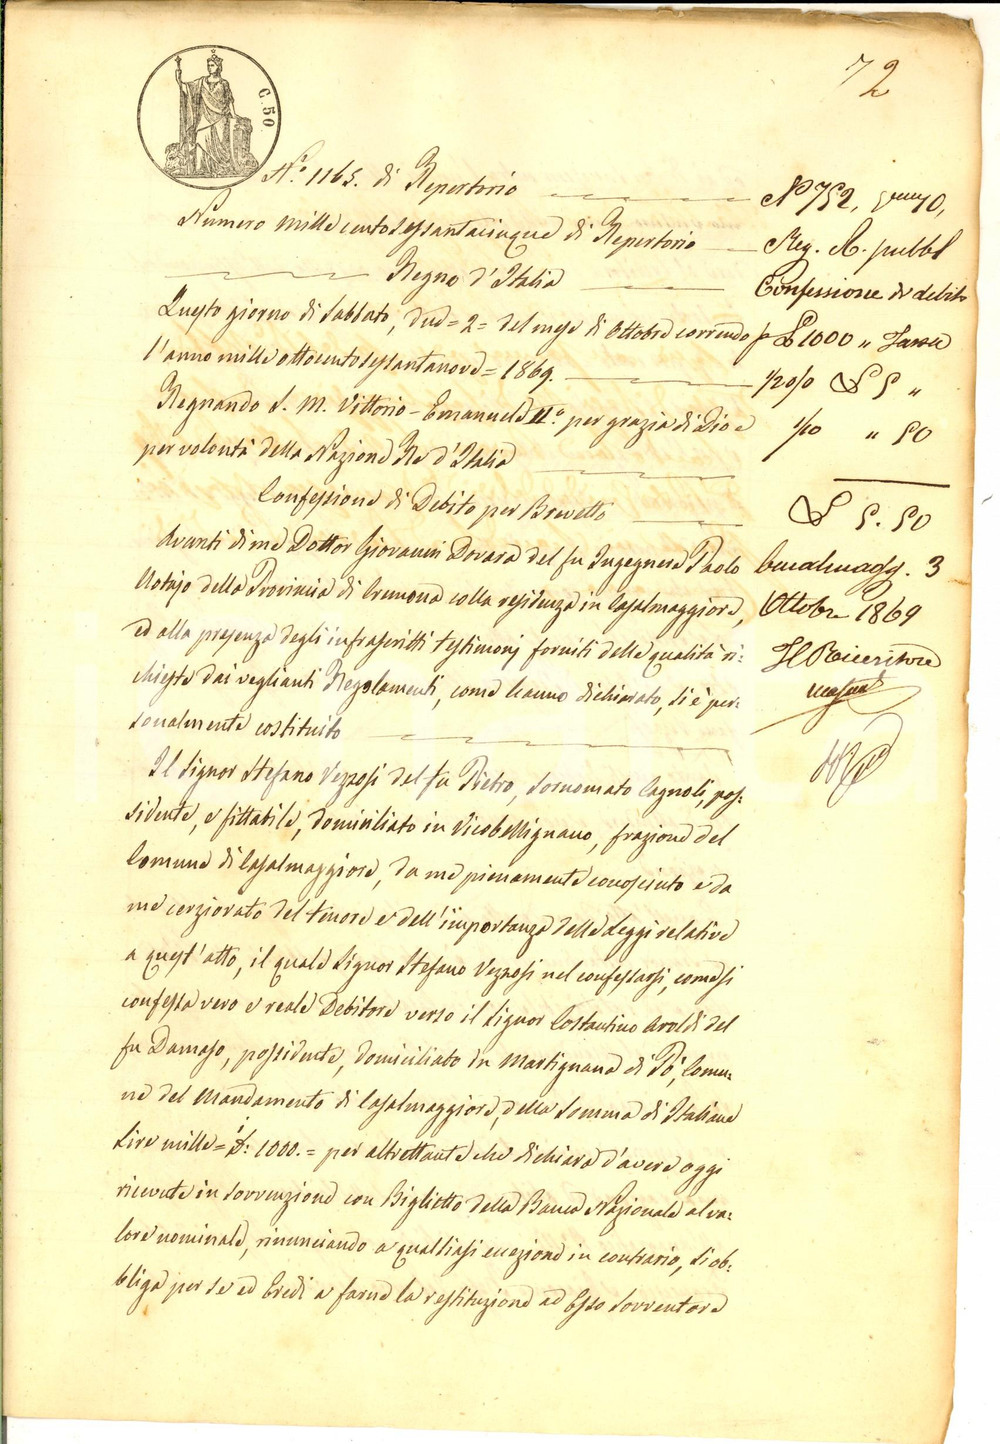 72
C. 50
N.° 1165. di Repertorio
Numero mille cento sessantacinque di Repertorio
Regno d'Italia
Questo giorno di Sabbato, due = 2 = del mese di Ottobre correndo
l'anno mille ottocento sessantanove = 1869.
Regnando S. M. Vittorio - Emanuele II.° per grazia di Dio e
per volontà della Nazione Re d'Italia
Confessione di Debito per Brevetto
Avanti di me Dottor Giovanni Dovara del fu Ingegnere Paolo
Notajo della Provincia di Cremona colla residenza in Casalmaggiore,
ed alla presenza degli infrascritti testimonj forniti delle qualità ri:
chieste dai veglianti Regolamenti, come hanno dichiarato, si è per:
sonalmente costituito
Il Signor Stefano Vezzosi del fu Pietro, sornomato Cagnoli, pos:
sidente, e fittabile, domiciliato in Vicobellignano, frazione del
Comune di Casalmaggiore, da me pienamente conosciuto e da
me cerziorato del tenore e dell'importanza delle Leggi relative
a quest'atto, il quale Signor Stefano Vezzosi nel confessarsi, come si
confessa vero e reale Debitore verso il Signor Costantino Aroldi del
fu Damaso, possidente, domiciliato in Martignana di Pò, Comu:
ne del Mandamento di Casalmaggiore, della Somma di Italiane
Lire mille = £: 1000. = per altrettante che dichiara d'avere oggi
ricevute in sovvenzione con Biglietto della Banca Nazionale al va:
lore nominale, rinunciando a qualsiasi eccezione in contrario, si ob:
bliga per se ed Eredi a farne la restituzione ad Esso Sovventore
N° 752,
Reg. A. pubbl
Confessione di debito
p £ 1000 " Tassa
1/2 0/0 £ 5 "
1/10 " 50
£ 5. 50
Casalmagg. 3
Ottobre 1869
Il Ricevitore